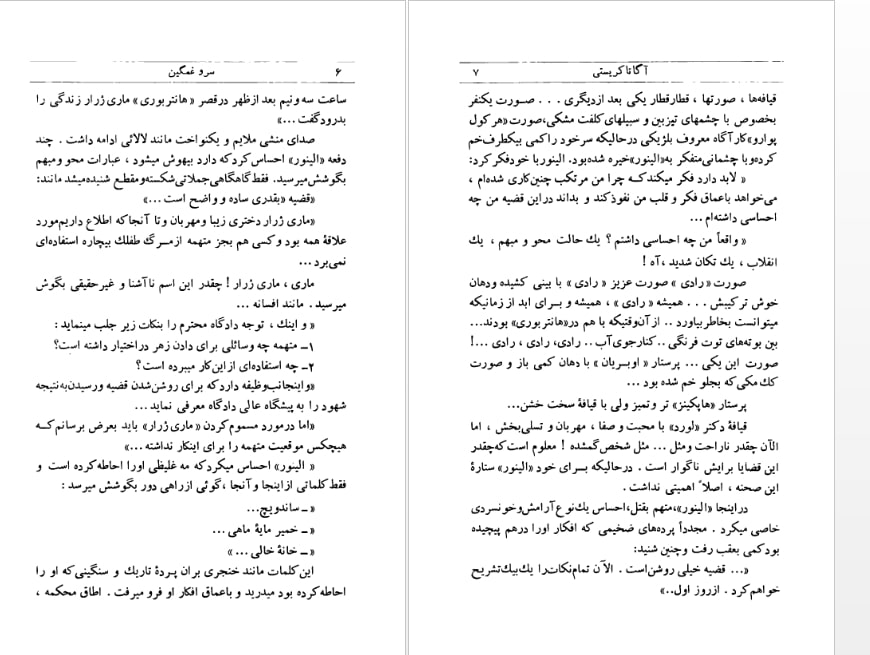 ۶ سرو غمگین
ساعت سه ونیم بعد ازظهر درقصر «هانتربوری» ماری ژرار زندگی را
بدرود گفت ...»
صدای منشی ملایم و یکنواخت مانند لالائی ادامه داشت . چند
دفعه «الینور» احساس کرد که دارد بیهوش میشود ، عبارات محو ومبهم
بگوشش میرسید. فقط گاهگاهی جملاتی شکسته ومقطع شنیده میشد مانند:
«قضیه «بقدری ساده و واضح است ...»
«ماری ژرار دختری زیبا ومهربان وتا آنجا که اطلاع داریم مورد
علاقهٔ همه بود وکسی هم بجز متهمه ازمــرگ طفلك بیچاره استفاده‌ای
نمی‌برد ...
ماری ، ماری ژرار ! چقدر این اسم ناآشنا و غیرحقیقی بگوش
میرسید . مانند افسانه ...
« و اینك ، توجه دادگاه محترم را بنکات زیر جلب مینماید :
۱ــ متهمه چه وسائلی برای دادن زهر دراختیار داشته است؟
۲ــ چه استفاده‌ای از این کار میبرده است ؟
«و اینجانب وظیفه دارد که برای روشن شدن قضیه ورسیدن به نتیجه
شهود را به پیشگاه عالی دادگاه معرفی نماید...
«اما درمورد مسموم کردن « ماری ژرار» باید بعرض برسانم کــه
هیچکس موقعیت متهمه را برای اینکار نداشته ...»
« الینور» احساس میکرد که مه غلیظی اورا احاطه کرده است و
فقط کلماتی از اینجا و آنجا ، گوئی از راهی دور بگوشش میرسد :
«ــ ساندویچ...
«ــ خمیر مایهٔ ماهی ...
«ــ خانهٔ خالی ... »
این کلمات مانند خنجری بران پردهٔ تاریك و سنگینی که او را
احاطه کرده بود میدرید و باعماق افکار او فرو میرفت . اطاق محکمه ،
آگاتا کریستی ۷
قیافه‌ها ، صورتها ، قطار قطار یکی بعد ازدیگری . . . صــورت یکنفر
بخصوص با چشمهای تیزبین و سبیلهای کلفت مشکی، صورت «هر کول
پوارو» کارآگاه معروف بلژیکی درحالیکه سرخود را کمی بیکطرف خم
کرده و با چشمانی متفکر به«الینور» خیره شده بود. الینور با خود فکر کرد:
« لابد دارد فکر میکند کــه چرا من مرتکب چنین کاری شده‌ام ،
می‌خواهد باعماق فکر و قلب من نفوذ کند و بداند دراین قضیه من چه
احساسی داشته‌ام ...
« واقعاً من چه احساسی داشتم ؟ یك حالت محو و مبهم ، یك
انقلاب ، یك تکان شدید ، آه !
صورت « رادی » صورت عزیز « رادی » با بینی کشیده ودهان
خوش ترکیبش . . . همیشه « رادی » ، همیشه و بــرای ابد از زمانیکه
میتوانست بخاطر بیاورد .. از آن وقتیکه با هم در«هانتربوری» بودند...
بین بوته‌های توت فرنگی .. کنار جوی آب .. رادی، رادی ، رادی ...!
صورت این یکی ... پرستار « اوبریان » با دهان کمی باز و صورت
كك مکی که بجلو خم شده بود ...
پرستار «هاپکینز» تر وتمیز ولی با قیافهٔ سخت خشن...
قیافهٔ دکتر «لورد» با محبت و صفا ، مهربان و تسلی‌بخش ، اما
الآن چقدر ناراحت ومثل ... مثل شخص گمشده ! معلوم است که چقدر
این قضایا برایش ناگوار است . درحالیکه بــرای خود «الینور» ستارهٔ
این صحنه ، اصلاً اهمیتی نداشت .
دراینجا «الینور»، متهم بقتل، احساس یك نوع آرامش و خونسردی
خاصی میکرد . مجدداً پرده‌های ضخیمی که افکار اورا درهم پیچیده
بود کمی بعقب رفت و چنین شنید:
«... قضیه خیلی روشن است . الآن تمام نکات را یك بیك تشریح
خواهم کرد . از روز اول..»